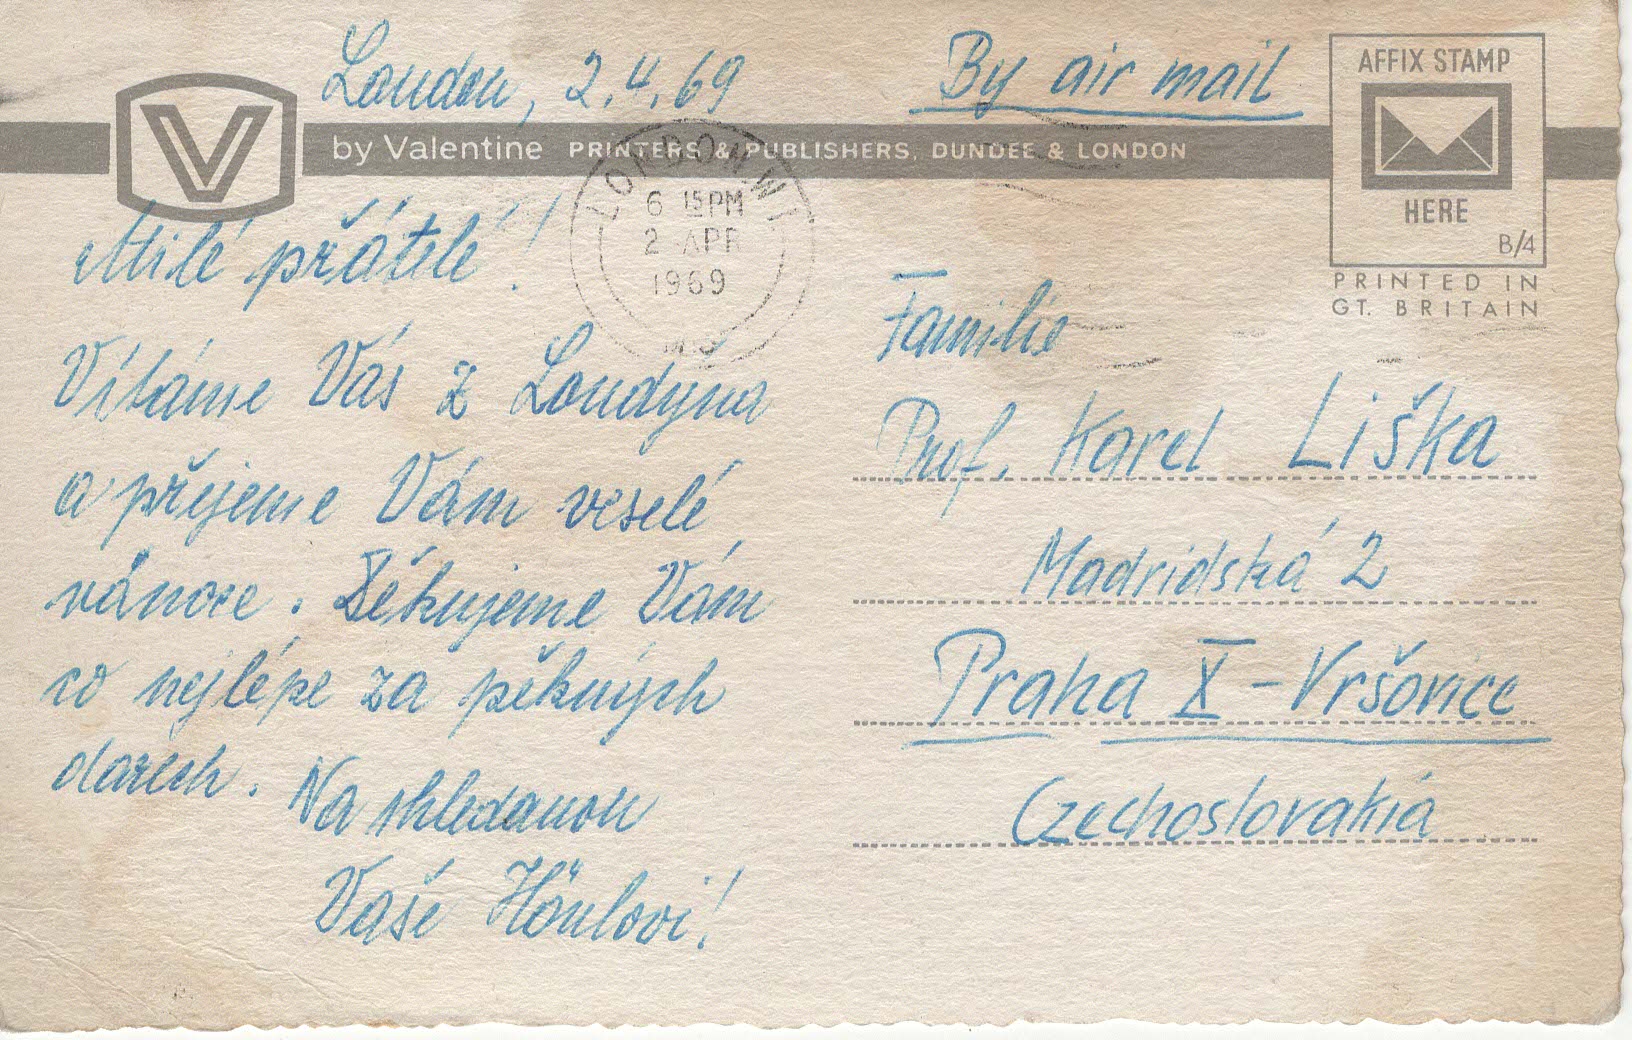 London, 2.4.69
By air mail
V by Valentine PRINTERS & PUBLISHERS, DUNDEE & LONDON
AFFIX STAMP
HERE
B/4
PRINTED IN
GT. BRITAIN
LONDON.W.1
6 15 PM
2 APR
1969
Milé přátelé!
Vítáme Vás z Londýna
a přejeme Vám veselé
vánoce. Děkujeme Vám
co nejlépe za pěkných
darech. Na shledanou
Vaše Hönlovi!
Familie
Prof. Karel Liška
Madridská 2
Praha X - Vršovice
Czechoslovakia